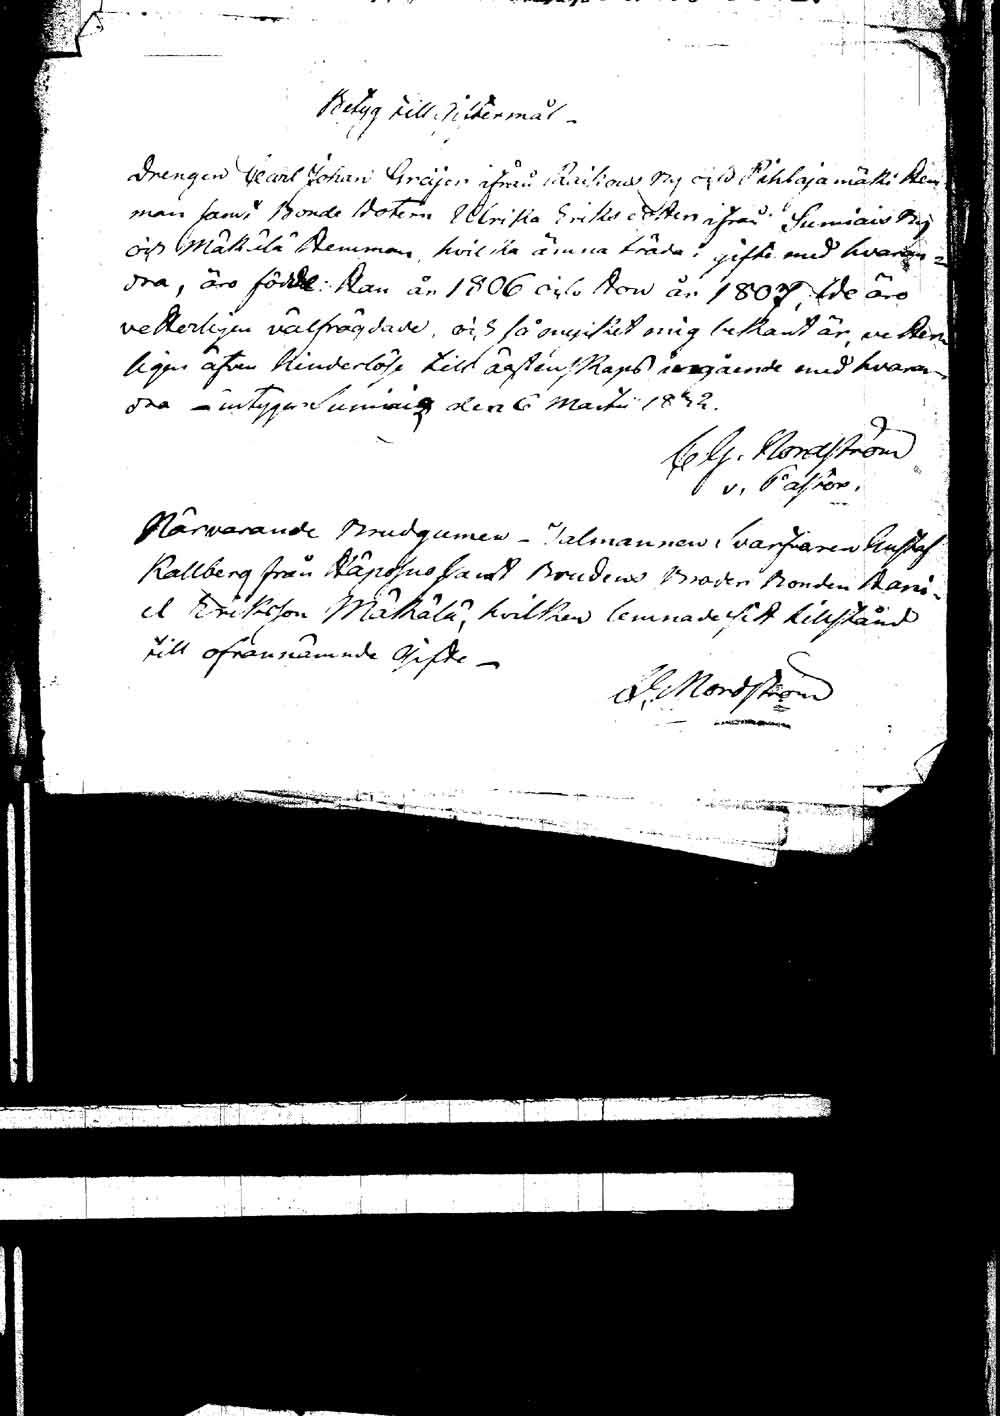 Betyg till Äktermål -
Drengen Carl Johan Greijer ifrån Raitious By och Pihlajamäki Hem-
man samt Bonde Dotern Ulrika Eriksdotter ifrån Sumiais By
och Mäkälä Hemman, hvilka ämna träda i gifte med hvaran=
dra, äro födde: Han år 1806 och Hon år 1807, De äro
vetterligen välfrägdade, och så mycket mig bekant är, vetter
ligen äfven hinderlöse till ägtenskaps ingående med hvaran-
dra - intygar Sumiais den 6 Martii 1832.
C G. Nordström
v. Pastor.
Närvarande Brudgumen - Talmannen Svarfvaren Gustaf
Kallberg från samt Brudens Broder Bonden Dani-
el Eriksson Mäkälä, hvilken lemnade sitt tillstånd
till ofvannämnde Gifte -
Nordström